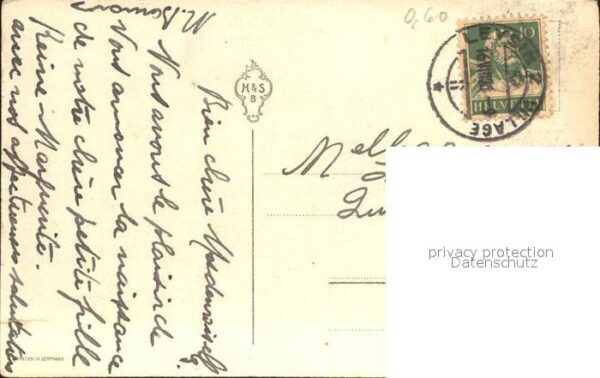 Bien chère Mademoiselle
Nous avons le plaisir de
vous annoncer la naissance
de notre chère petite fille
Reine Marguerite.
avec nos affectueuses salutations
0,60
H & S
B
10
HELVETIA
Mell
privacy protection
Datenschutz
PRINTED IN GERMANY